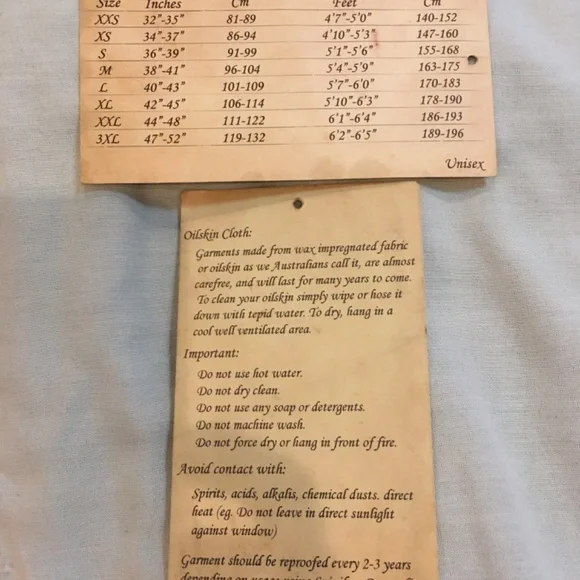 Size Inches Cm Feet Cm
XXS 32"-35" 81-89 4'7"-5'0" 140-152
XS 34"-37" 86-94 4'10"-5'3" 147-160
S 36"-39" 91-99 5'1"-5'6" 155-168
M 38"-41" 96-104 5'4"-5'9" 163-175
L 40"-43" 101-109 5'7"-6'0" 170-183
XL 42"-45" 106-114 5'10"-6'3" 178-190
XXL 44"-48" 111-122 6'1"-6'4" 186-193
3XL 47"-52" 119-132 6'2"-6'5" 189-196
Unisex
Oilskin Cloth:
Garments made from wax impregnated fabric
or oilskin as we Australians call it, are almost
carefree, and will last for many years to come.
To clean your oilskin simply wipe or hose it
down with tepid water. To dry, hang in a
cool well ventilated area.
Important:
Do not use hot water.
Do not dry clean.
Do not use any soap or detergents.
Do not machine wash.
Do not force dry or hang in front of fire.
Avoid contact with:
Spirits, acids, alkalis, chemical dusts. direct
heat (eg. Do not leave in direct sunlight
against window)
Garment should be reproofed every 2-3 years
depending on usage using